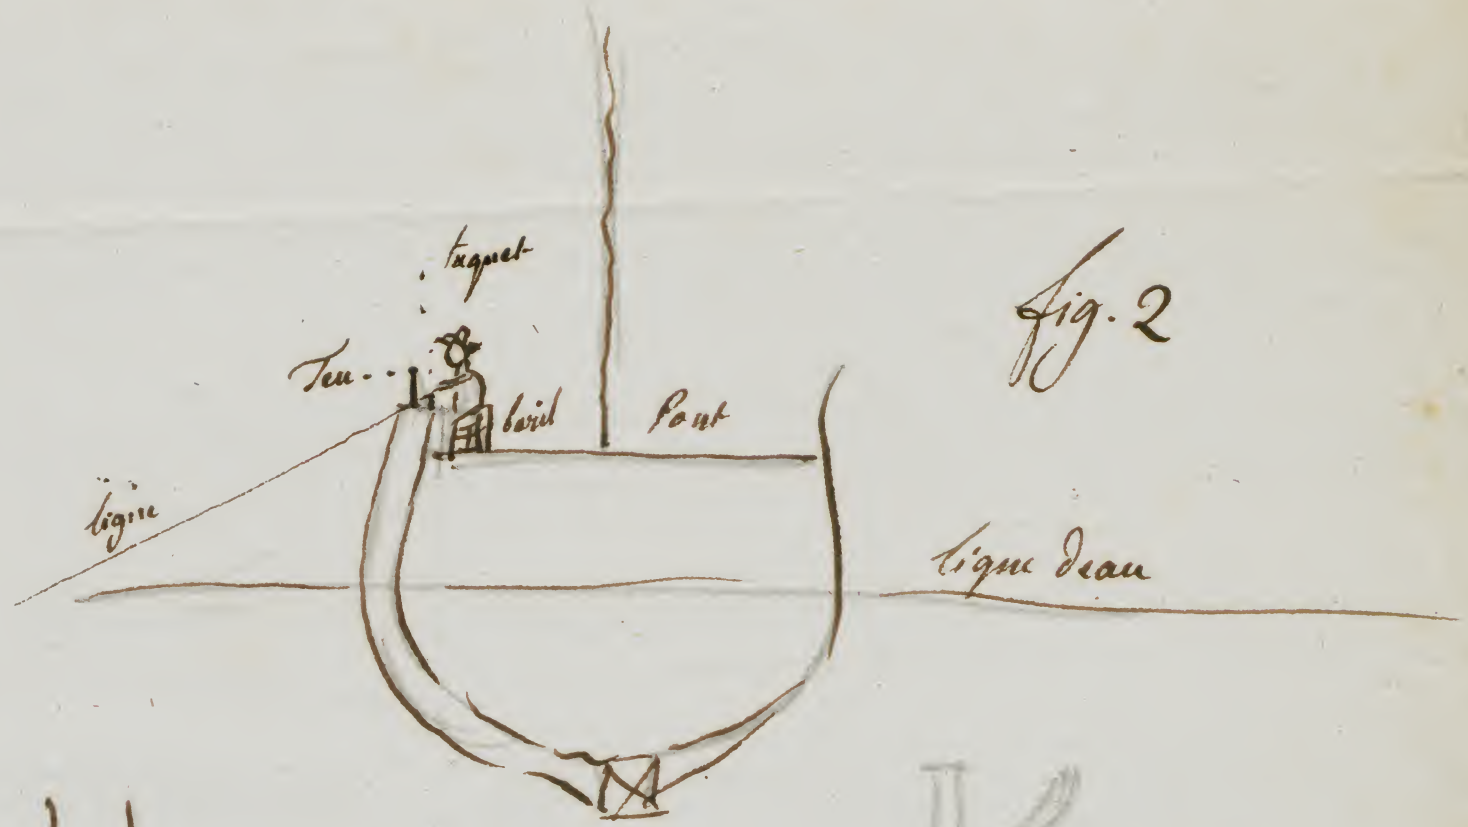 taquet
fig. 2
Teu
baril
Pont
ligne
ligne deau